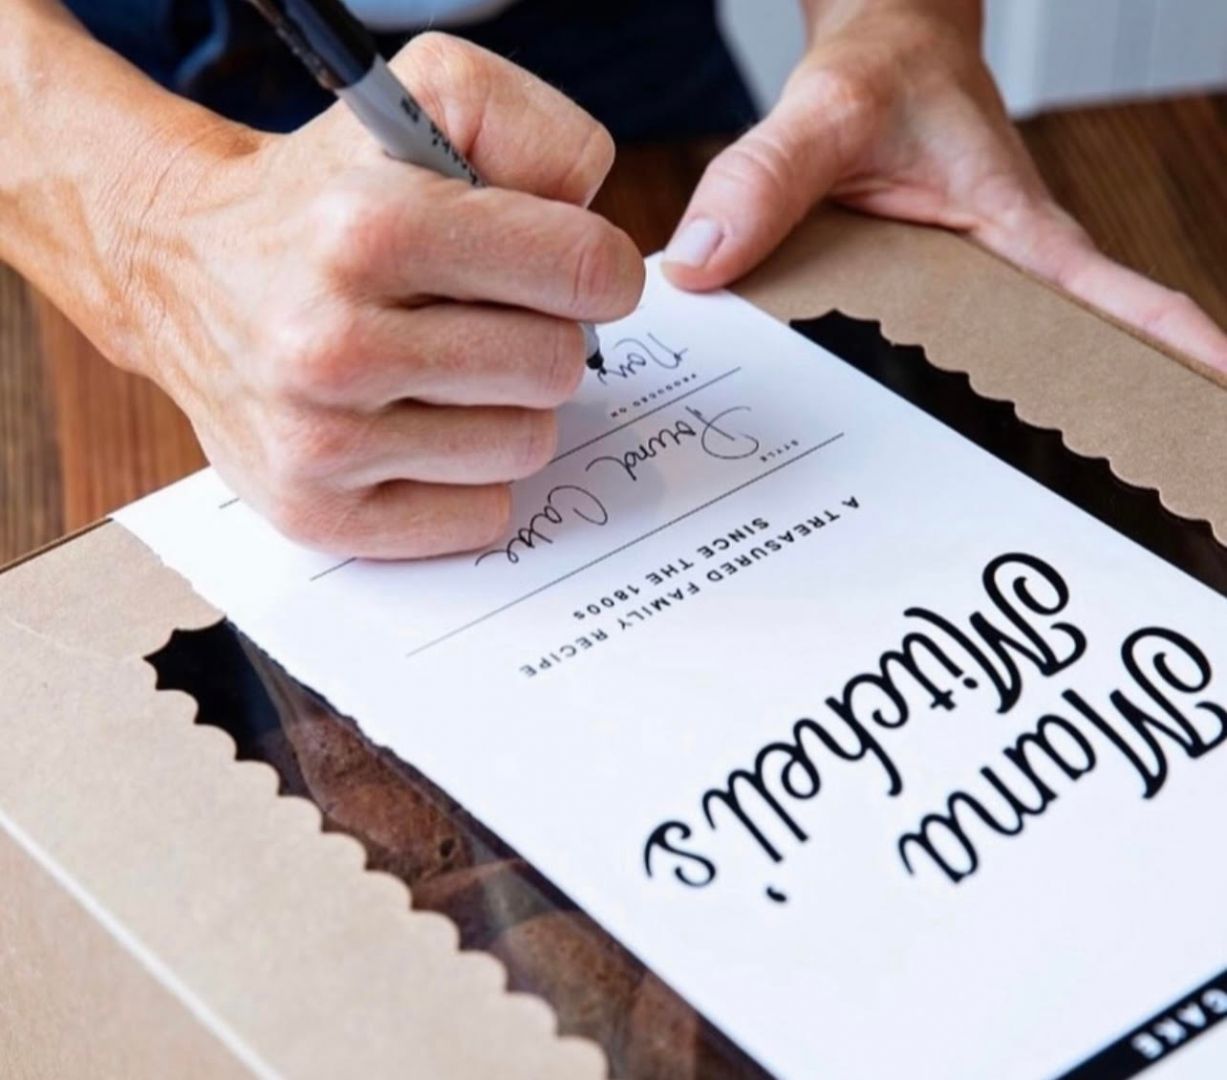 CAKE
Mama
Mitchell's
A TREASURED FAMILY RECIPE
SINCE THE 1800s
STYLE
Pound Cake
PRODUCED ON
Nov